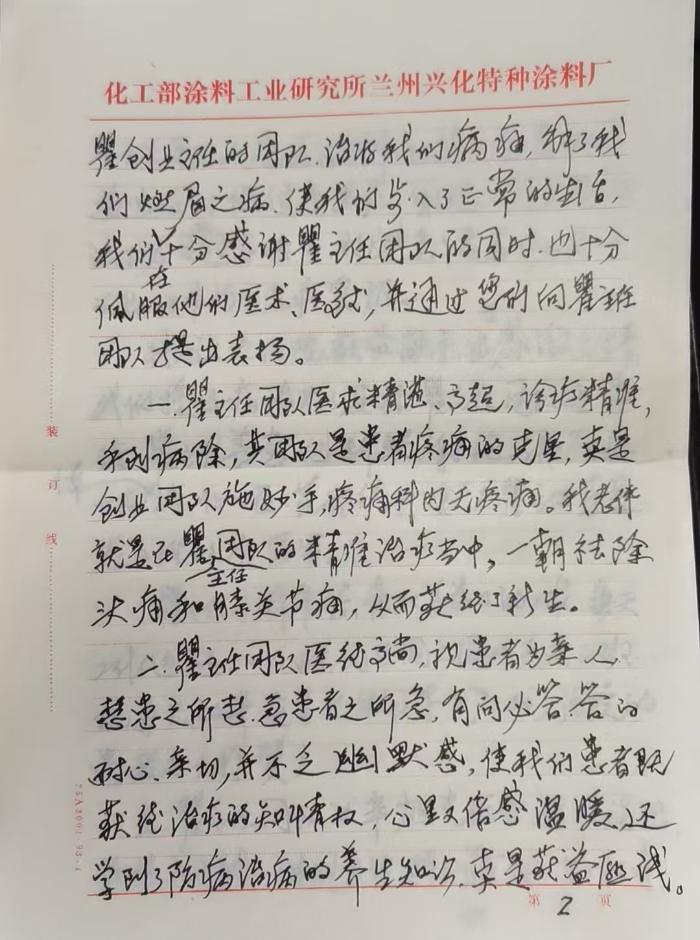 化工部涂料工业研究所兰州兴化特种涂料厂
瞿创业主任的团队、治好我们病痛,解了我
们燃眉之病、使我们步入了正常的生活,
我们十分感谢瞿主任团队的同时、也十分
在
佩服他们医术、医德,并通过您们向瞿主任
团队提出表扬。
一.瞿主任团队医术精湛、高超,诊疗精准,
手到病除,其团队是患者疼痛的克星,真是
创业团队施妙手,疼痛科内无疼痛。我老伴
就是在瞿团队的精准治疗当中,一朝祛除
主任
头痛和膝关节痛,从而获得了新生。
二.瞿主任团队医德高尚,视患者为亲人、
想患之所想、急患者之所急,有问必答、答的
耐心、亲切,并不乏幽默感,使我们患者既
获得治疗的知情权,心里又倍感温暖,还
学到了防病治病的养生知识、真是获益匪浅。
装
订
线
第 2 页